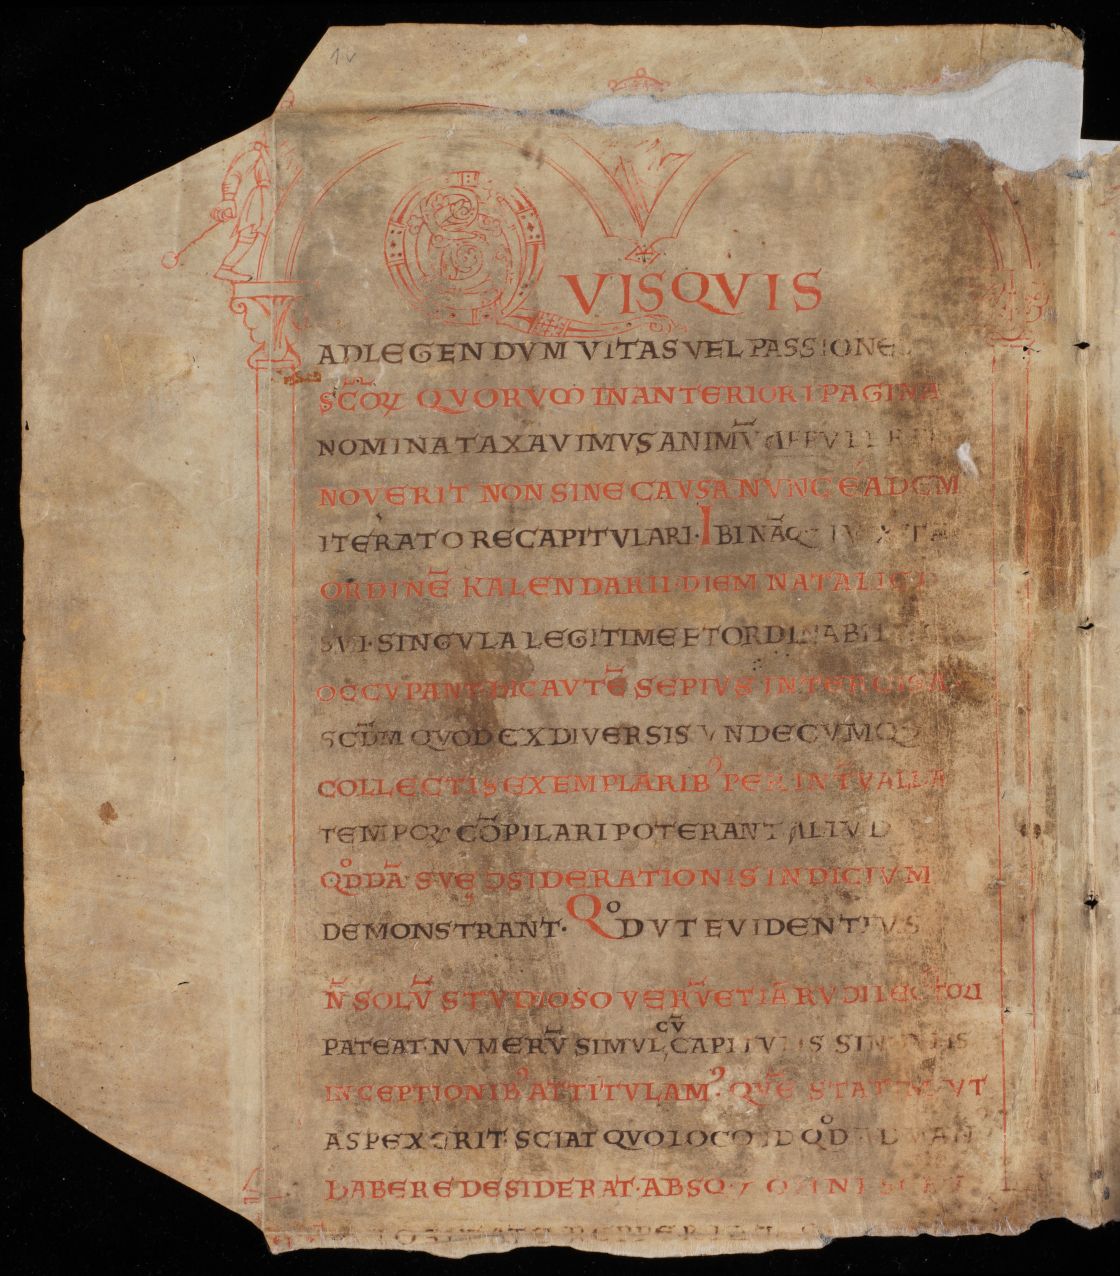 1v
QVISQVIS
ADLEGENDVM VITAS VEL PASSIONES
SC̄OꝜ QVORVM IN ANTERIORI PAGINA
NOMINA TAXAVIMVS ANIMV̄
NOVERIT NON SINE CAVSA NVNC EADEM
ITERATO RECAPITVLARI· IBI NĀQ; IVXTA
ORDINĒ KALENDARII· DIEM NATALICII
SVI· SINGVLA LEGITIME ET ORDINABILITER
OCCVPANT HIC AVTĒ SEPIVS INTERCISA
SCD̄M QVOD EX DIVERSIS VNDECVMQ;
COLLECTIS EXEMPLARIB᾽ PER INT̄VALLA
TEMPOꝜ CŌPILARI POTERANT ALIVD
QͦDDĀ· SVĘ DSIDERATIONIS INDICIVM
DEMONSTRANT· QͦD VT EVIDENTIVS
N̄ SOLV̄ STVDIOSO VERV̄ETIĀ RVDI LECTORI
PATEAT· NVMERV̄ SIMVL CV̄ CAPITVLIS SINGVLIS
INCEPTIONIB᾽ ATTITVLAM᾽· QVĒ STATIM VT
ASPEXERIT· SCIAT QVO LOCO ID QͦD
HABERE DESIDERAT· ABSQ;